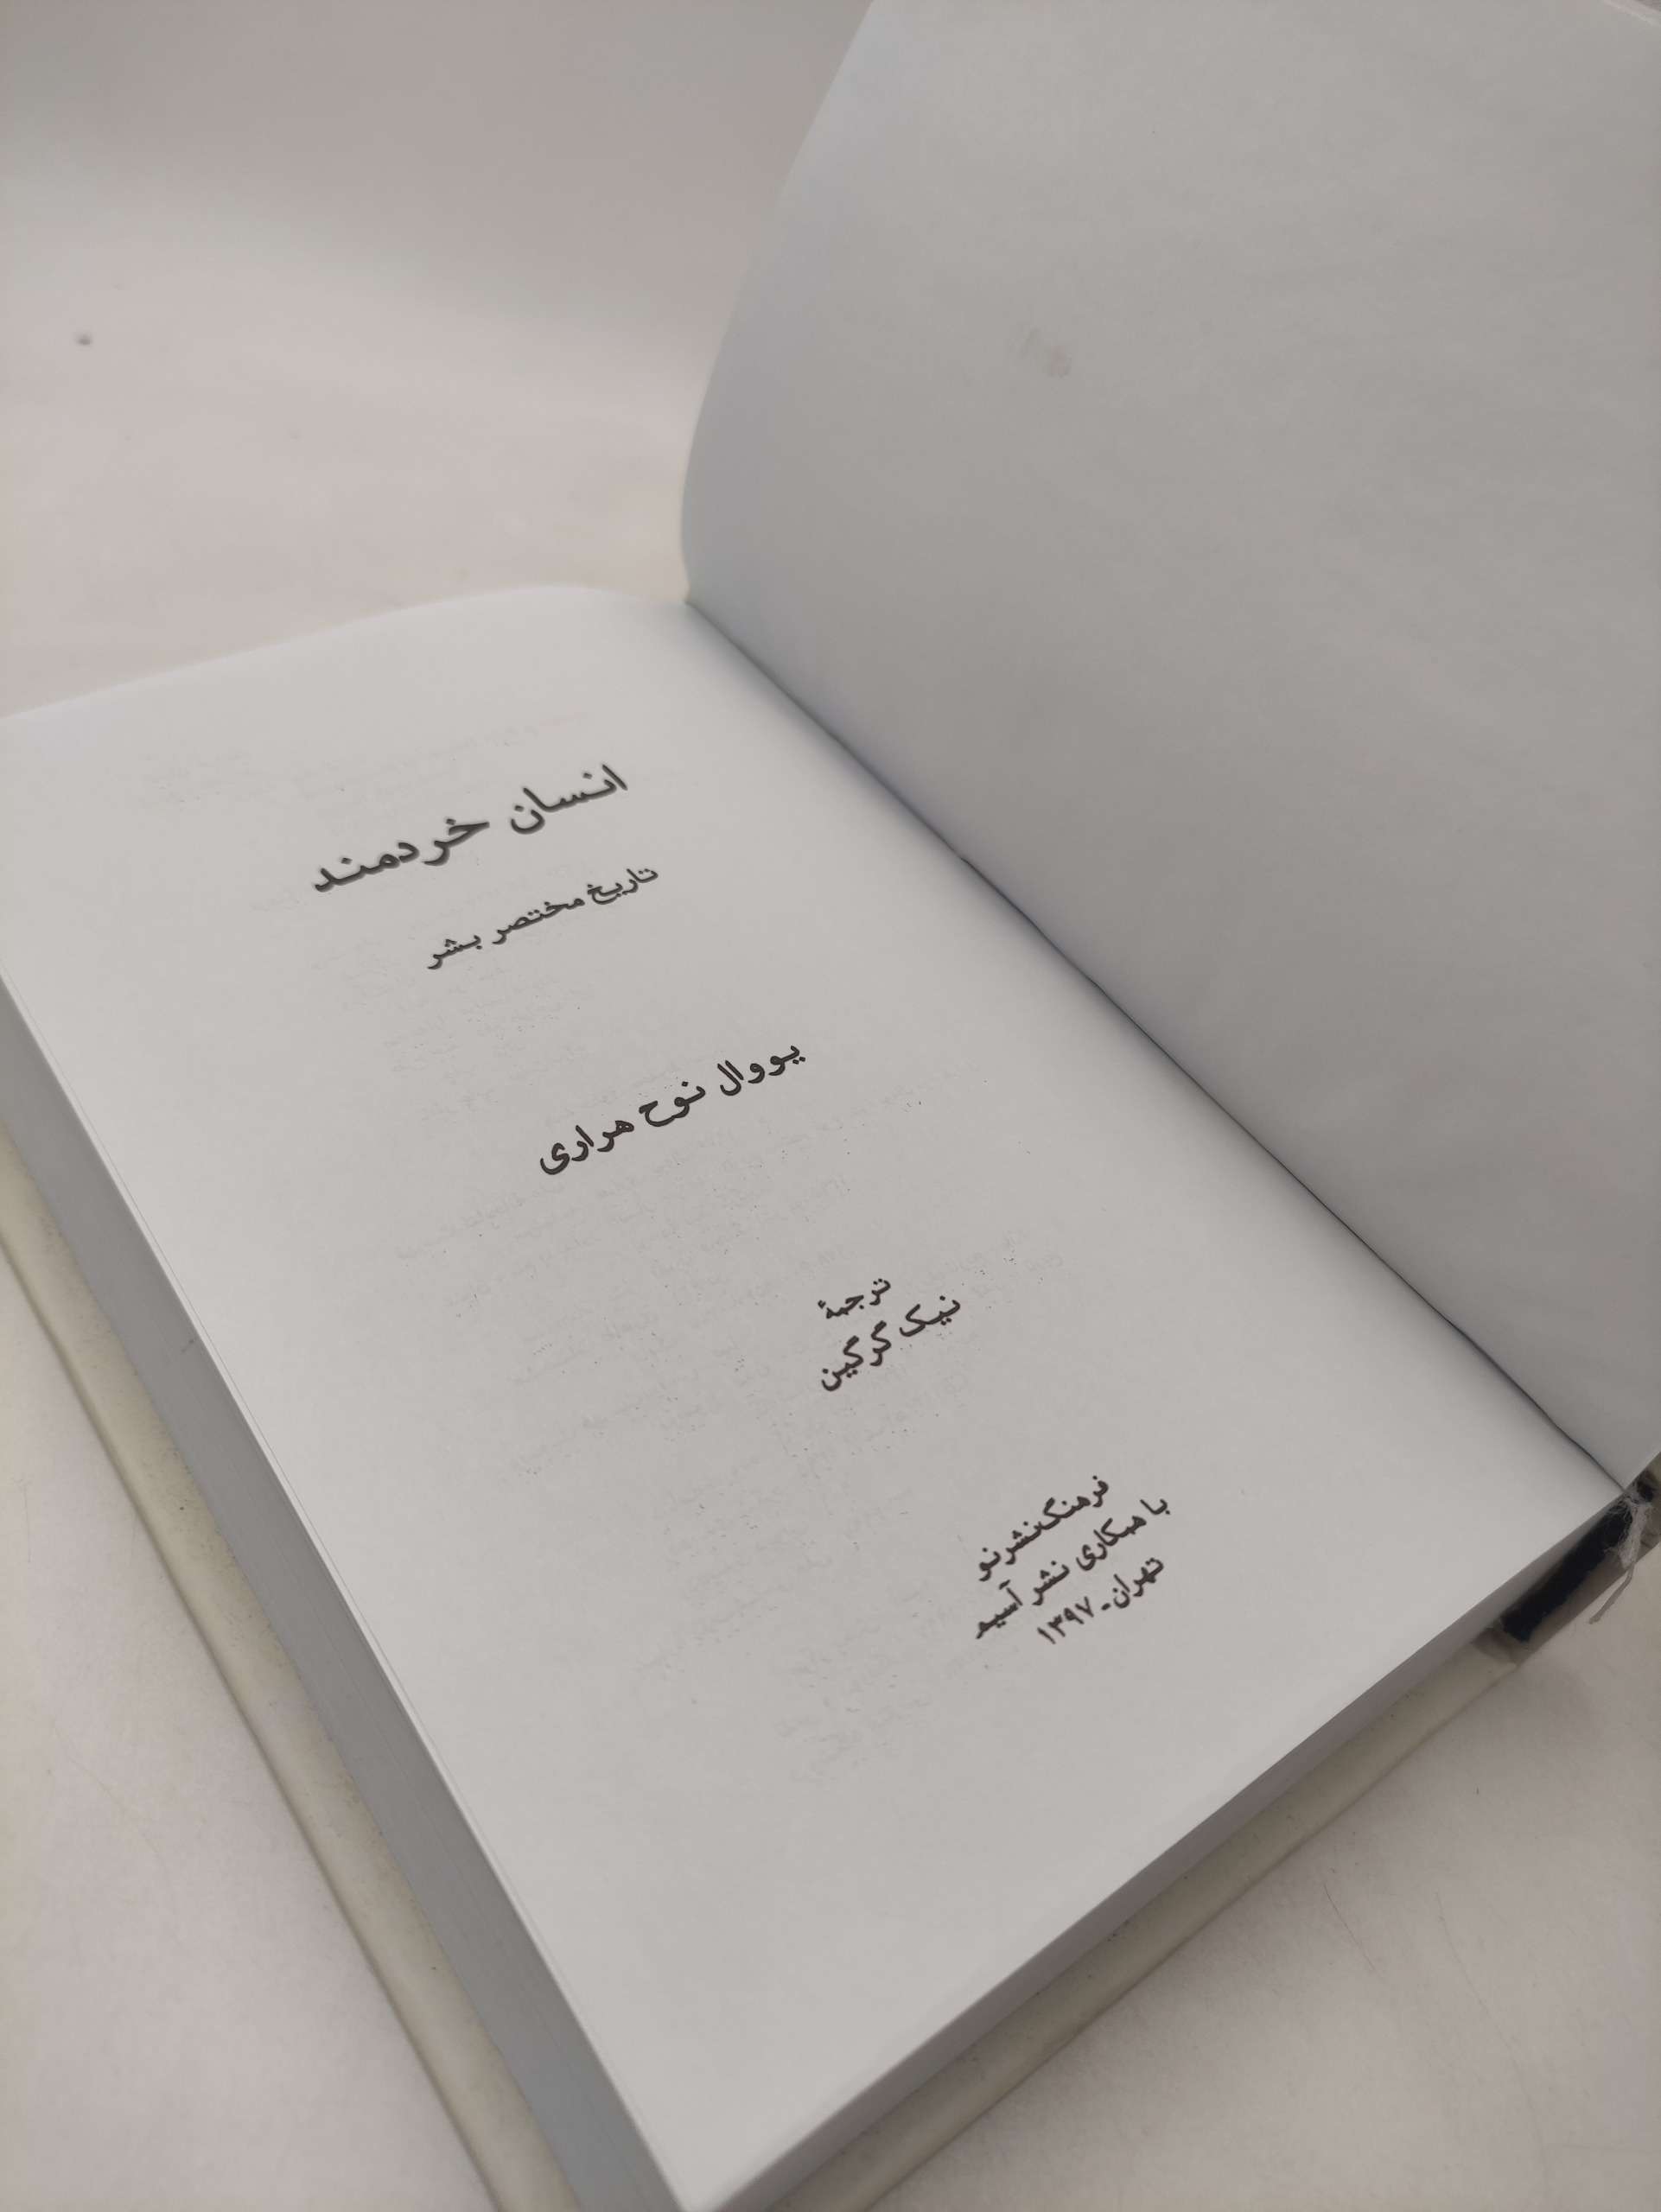 انسان خردمند
تاریخ مختصر بشر
یووال نوح هراری
ترجمهٔ
نیک گرگین
فرهنگ‌نشرنو
با همکاری نشر آسیم
تهران ـ ۱۳۹۷